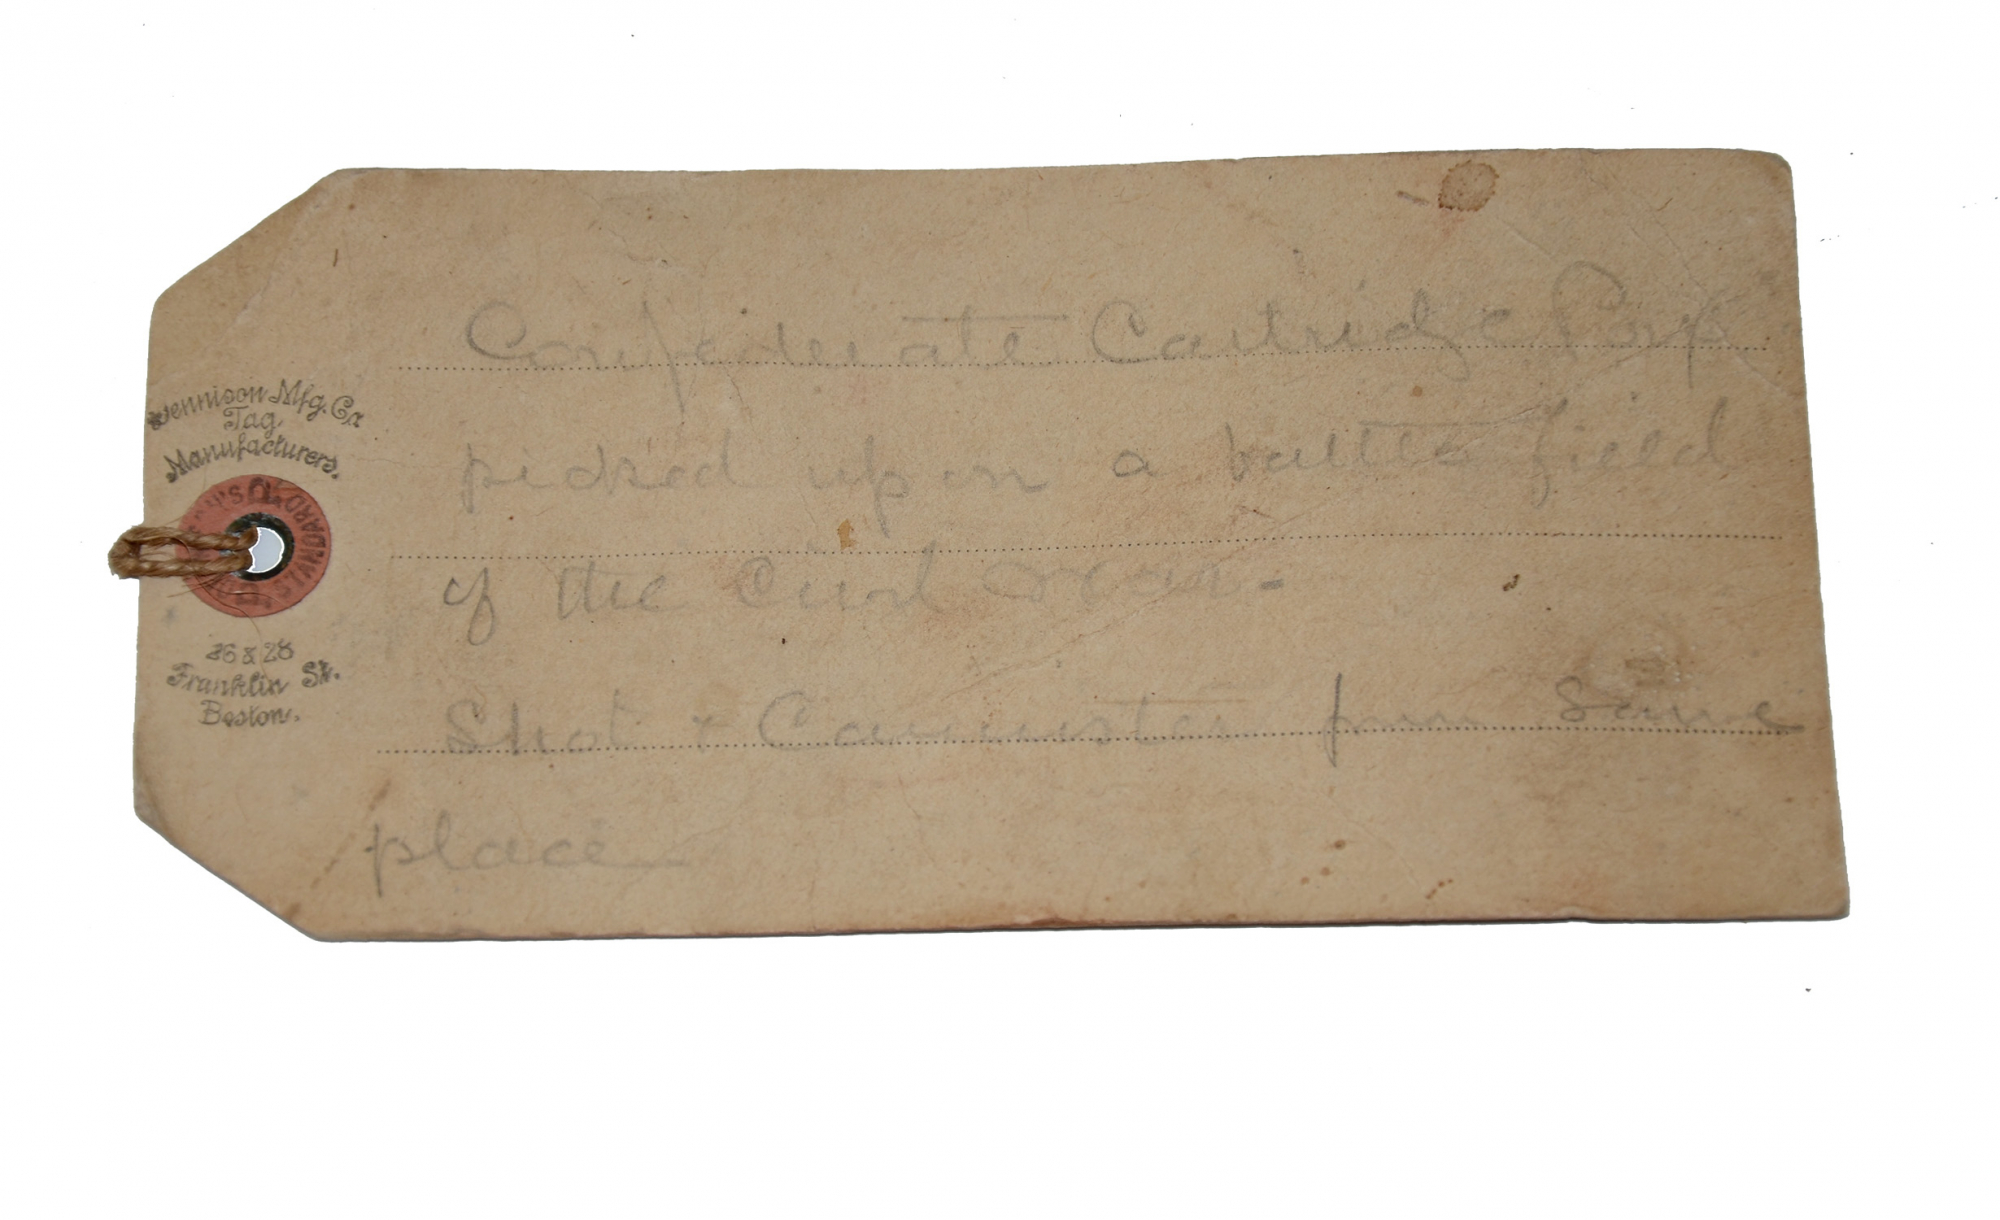 Dennison Mfg. Co.
Tag
Manufacturers.
STANDARD
26 & 28
Franklin St.
Boston.
Confederate Cartridge
picked up on a battle field
of the Civil War -
Shot & Cannister from same
place